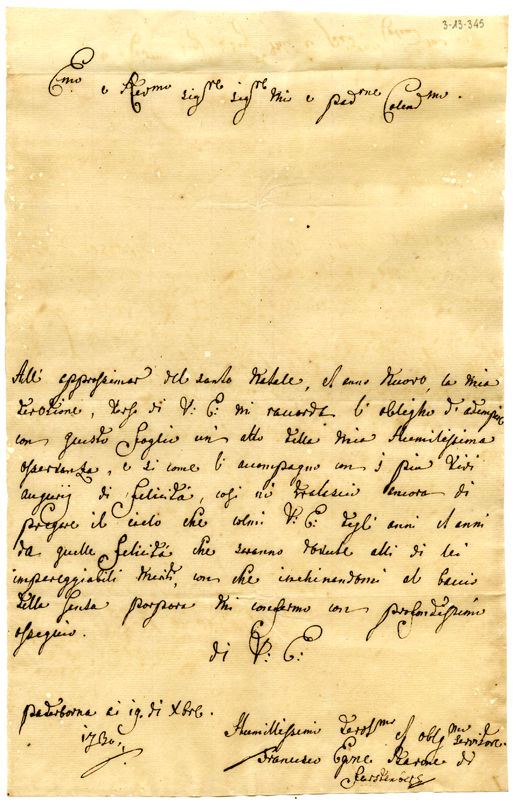 3-13-345
Emo e Revmo sigre sigre mio e padrne Colendmo.
All' approssimar del santo Natale, et anno nuovo, la mia
devotione, verso di V: E: mi raccorda l'obligho d'adempire
con questo foglio un atto della mia humilissima
osservanza, e si come l'accompagno con i più vivi
augurij di felicità, cosi nò tralascio ancora di
pregare il cielo che colmi V: E: degli anni et anni
da quelle felicità che saranno dovute alli di lei
impareggiabili meriti, con che inchinandomi al bacio
della sacra porpora mi confermo con profondissimo
ossequio.
di V: E:
paderborna ai 19. di Xbre.
1730.
Humilissimo devosmo et oblgmo servitore.
Francesco Barone di
Furstenberg